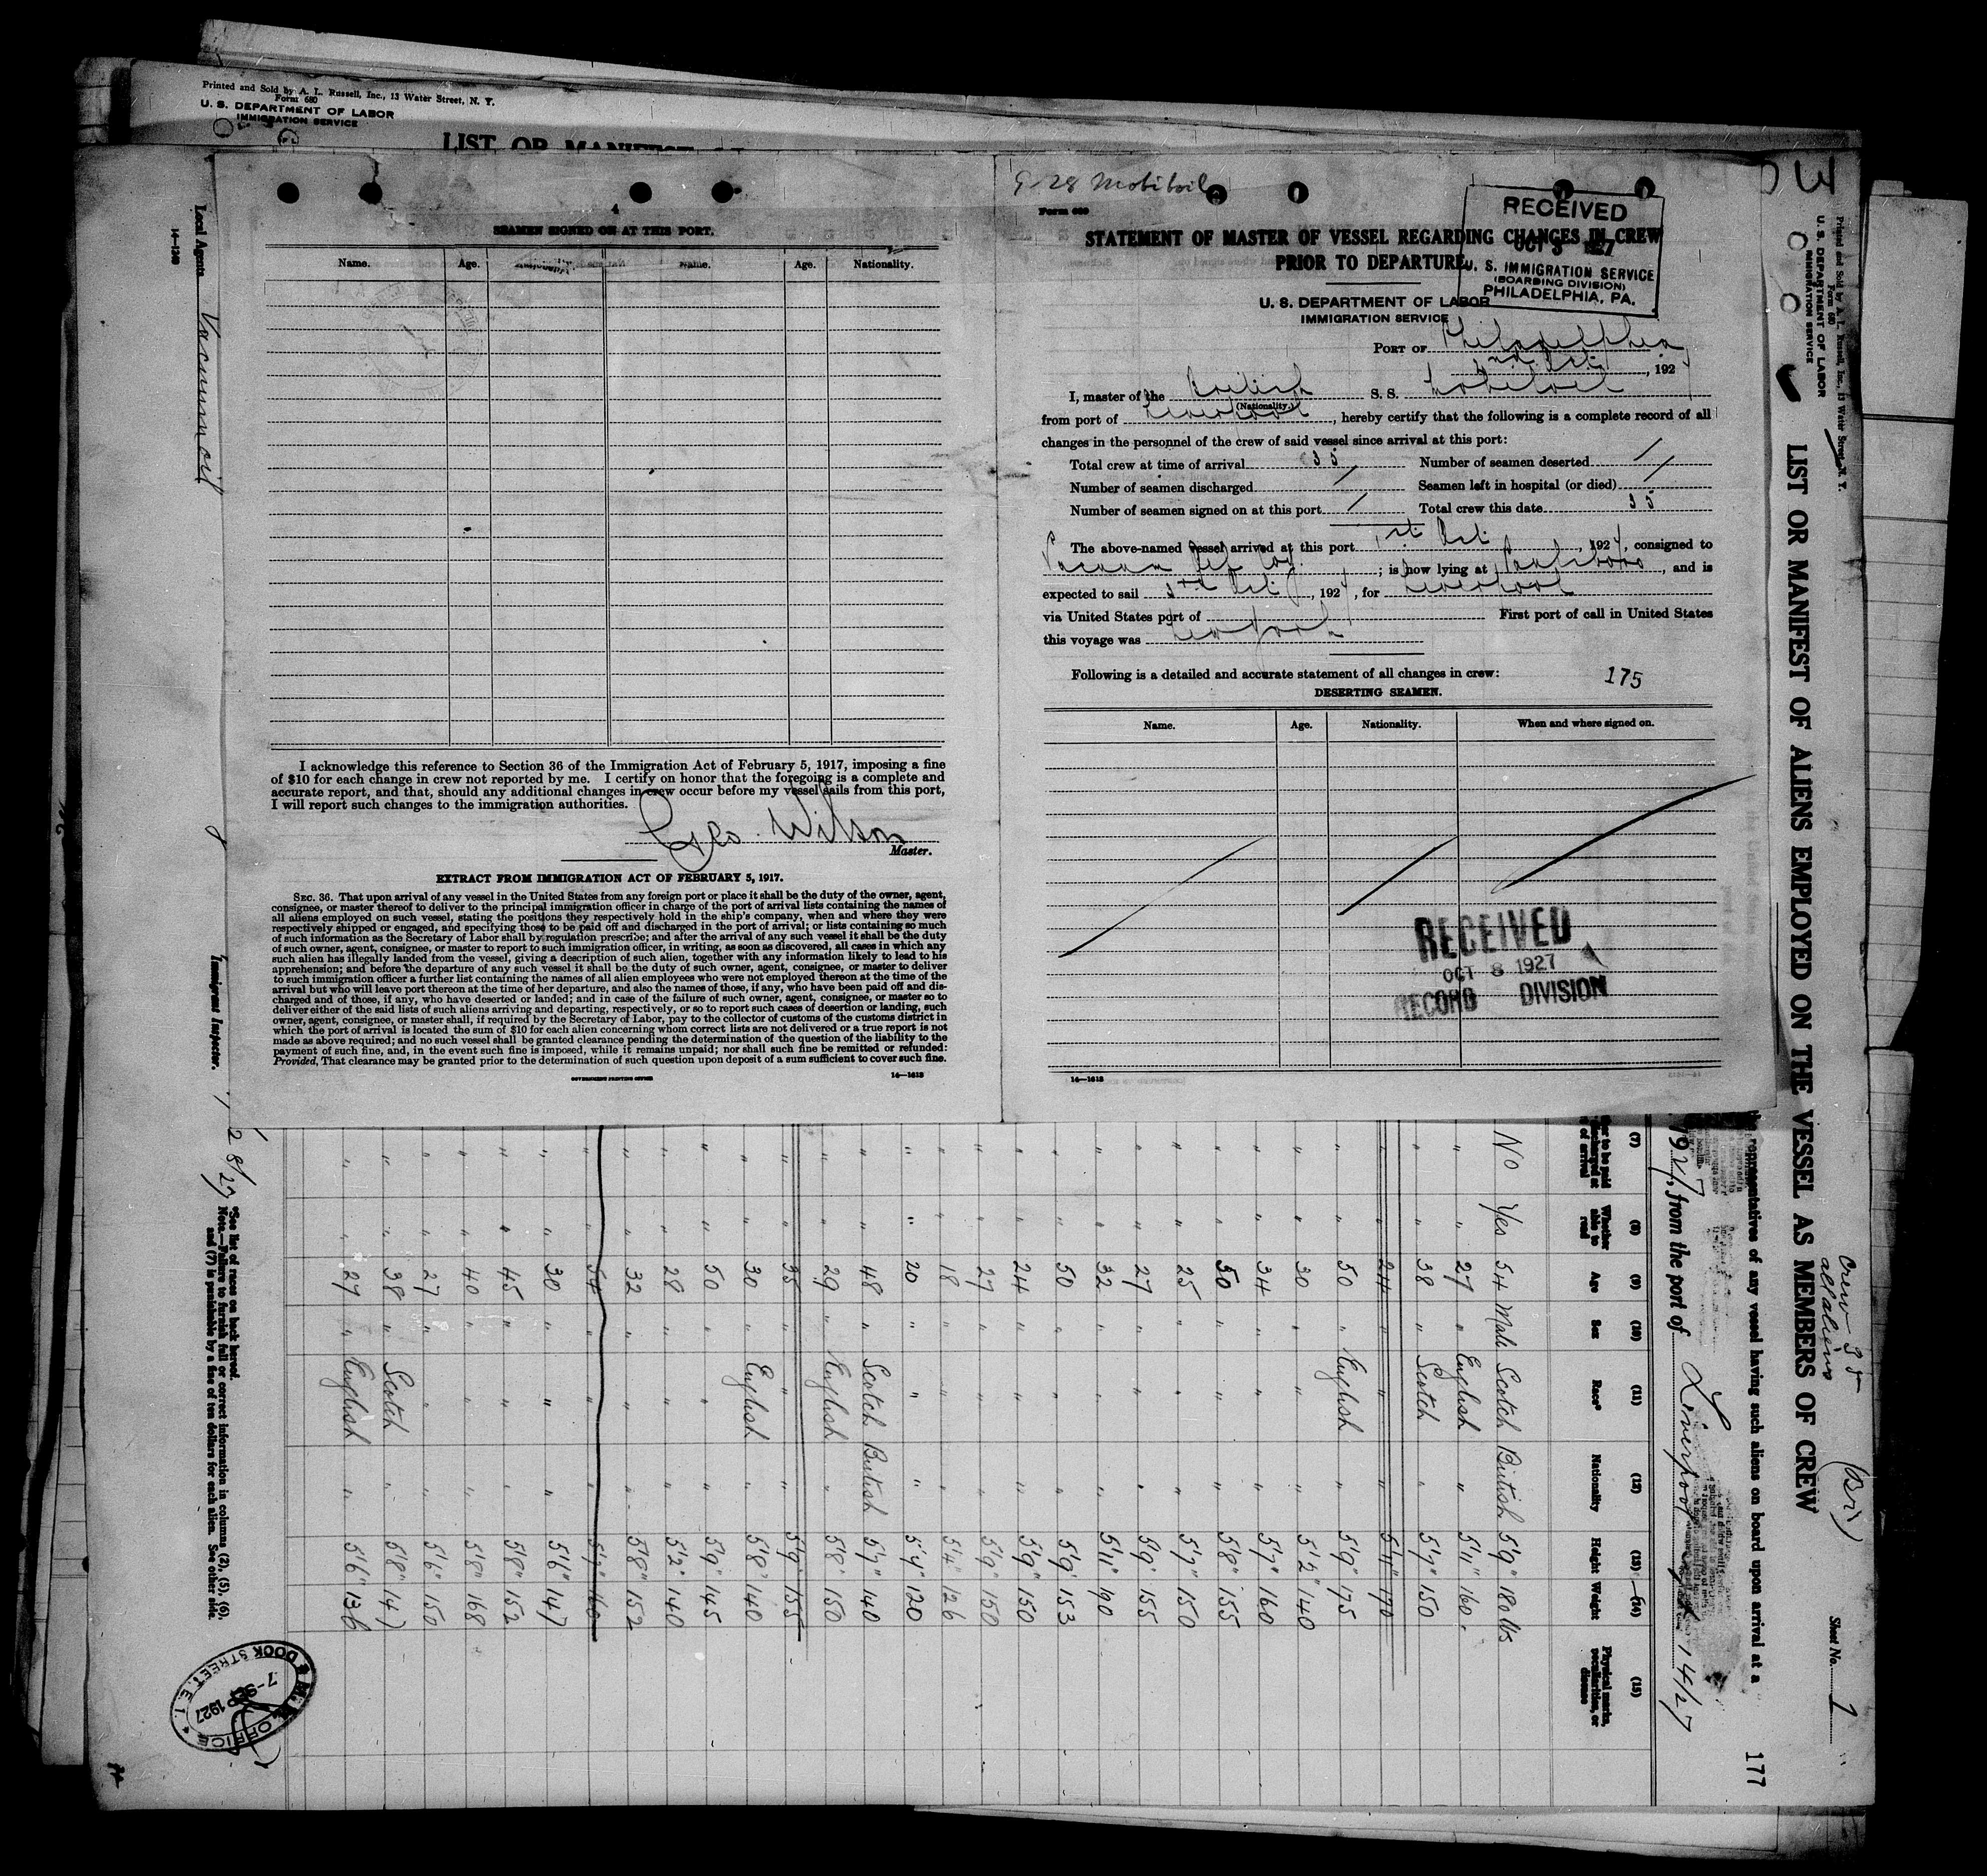 Printed and Sold by A. L. Russell, Inc., 13 Water Street, N. Y.
Form 680
U. S. DEPARTMENT OF LABOR
IMMIGRATION SERVICE
LIST OR MANIFEST
4
SEAMEN SIGNED ON AT THIS PORT.
Name. Age. Nationality. Name. Age. Nationality.
I acknowledge this reference to Section 36 of the Immigration Act of February 5, 1917, imposing a fine
of $10 for each change in crew not reported by me. I certify on honor that the foregoing is a complete and
accurate report, and that, should any additional changes in crew occur before my vessel sails from this port,
I will report such changes to the immigration authorities.
Geo. Wilson
Master.
EXTRACT FROM IMMIGRATION ACT OF FEBRUARY 5, 1917.
SEC. 36. That upon arrival of any vessel in the United States from any foreign port or place it shall be the duty of the owner, agent,
consignee, or master thereof to deliver to the principal immigration officer in charge of the port of arrival lists containing the names of
all aliens employed on such vessel, stating the positions they respectively hold in the ship's company, when and where they were
respectively shipped or engaged, and specifying those to be paid off and discharged in the port of arrival; or lists containing so much
of such information as the Secretary of Labor shall by regulation prescribe; and after the arrival of any such vessel it shall be the duty
of such owner, agent, consignee, or master to report to such immigration officer, in writing, as soon as discovered, all cases in which any
such alien has illegally landed from the vessel, giving a description of such alien, together with any information likely to lead to his
apprehension; and before the departure of any such vessel it shall be the duty of such owner, agent, consignee, or master to deliver
to such immigration officer a further list containing the names of all alien employees who were not employed thereon at the time of the
arrival but who will leave port thereon at the time of her departure, and also the names of those, if any, who have been paid off and dis-
charged and of those, if any, who have deserted or landed; and in case of the failure of such owner, agent, consignee, or master so to
deliver either of the said lists of such aliens arriving and departing, respectively, or so to report such cases of desertion or landing, such
owner, agent, consignee, or master shall, if required by the Secretary of Labor, pay to the collector of customs of the customs district in
which the port of arrival is located the sum of $10 for each alien concerning whom correct lists are not delivered or a true report is not
made as above required; and no such vessel shall be granted clearance pending the determination of the question of the liability to the
payment of such fine, and, in the event such fine is imposed, while it remains unpaid; nor shall such fine be remitted or refunded:
Provided, That clearance may be granted prior to the determination of such question upon deposit of a sum sufficient to cover such fine.
GOVERNMENT PRINTING OFFICE 14—1613
9-28 Mobiloil
Form 689
STATEMENT OF MASTER OF VESSEL REGARDING CHANGES IN CREW
PRIOR TO DEPARTURE
RECEIVED
OCT 3 1927
U. S. IMMIGRATION SERVICE
(BOARDING DIVISION)
PHILADELPHIA, PA.
U. S. DEPARTMENT OF LABOR
IMMIGRATION SERVICE
PORT OF Philadelphia
2nd Oct., 192
I, master of the British S. S. Mobiloil
(Nationality.)
from port of Liverpool, hereby certify that the following is a complete record of all
changes in the personnel of the crew of said vessel since arrival at this port:
Total crew at time of arrival 35 Number of seamen deserted /
Number of seamen discharged / Seamen left in hospital (or died) /
Number of seamen signed on at this port / Total crew this date 35
The above-named vessel arrived at this port 1st Oct., 1927, consigned to
Vacuum Oil Coy.; is now lying at Paulsboro, and is
expected to sail 3rd Oct, 1927, for Liverpool
via United States port of First port of call in United States
this voyage was New York
Following is a detailed and accurate statement of all changes in crew:
175
DESERTING SEAMEN.
Name. Age. Nationality. When and where signed on.
RECEIVED
OCT 8 1927
RECORD DIVISION
14—1613
Printed and Sold by A. L. Russell, Inc., 13 Water Street, N. Y.
Form 680
U. S. DEPARTMENT OF LABOR
IMMIGRATION SERVICE
LIST OR MANIFEST OF ALIENS EMPLOYED ON THE VESSEL AS MEMBERS OF CREW
Crew 35
all aliens
(Br)
Sheet No. 1
177
the representatives of any vessel having such aliens on board upon arrival at a
1927, from the port of Liverpool 14/27
(7) (8) (9) (10) (11) (12) (13) (14) (15)
Whether able to read
Age
Sex
Race*
Nationality
Height
Weight
Physical marks, peculiarities, or disease
No Yes 54 Male Scotch British 5'9" 180 lbs
" " 27 " English " 5'11" 160
" " 38 " Scotch " 5'7" 150
" " 24 " " " 5'11" 170
" " 50 " English " 5'9" 175
" " 30 " " " 5'2" 140
" " 34 " " " 5'7" 160
" " 50 " " " 5'8" 155
" " 25 " " " 5'7" 150
" " 27 " " " 5'9" 155
" " 32 " " " 5'11" 190
" " 50 " " " 5'9" 153
" " 24 " " " 5'9" 150
" " 27 " " " 5'9" 150
" " 18 " " " 5'4" 126
" " 20 " " " 5'4" 120
" " 48 " Scotch British 5'7" 140
" " 29 " English " 5'8" 150
" " 35 " " " 5'9" 155
" " 30 " English " 5'8" 140
" " 50 " " " 5'9" 145
" " 28 " " " 5'2" 140
" " 32 " " " 5'8" 152
" " 54 " " " 5'7" 160
" " 30 " " " 5'6" 147
" " 45 " " " 5'8" 152
" " 40 " " " 5'8" 168
" " 27 " " " 5'6" 150
" " 38 " Scotch " 5'8" 147
" " 27 " English " 5'6" 136
*See list of races on back hereof.
Note.—Failure to furnish full or correct information in columns (2), (5), (6),
and (7) is punishable by a fine of ten dollars for each alien. See other side.
Local Agents Vacuum oil
14—1240
Immigrant Inspector.
OFFICE
7-SEP 1927
DOCK STREET. E.1.